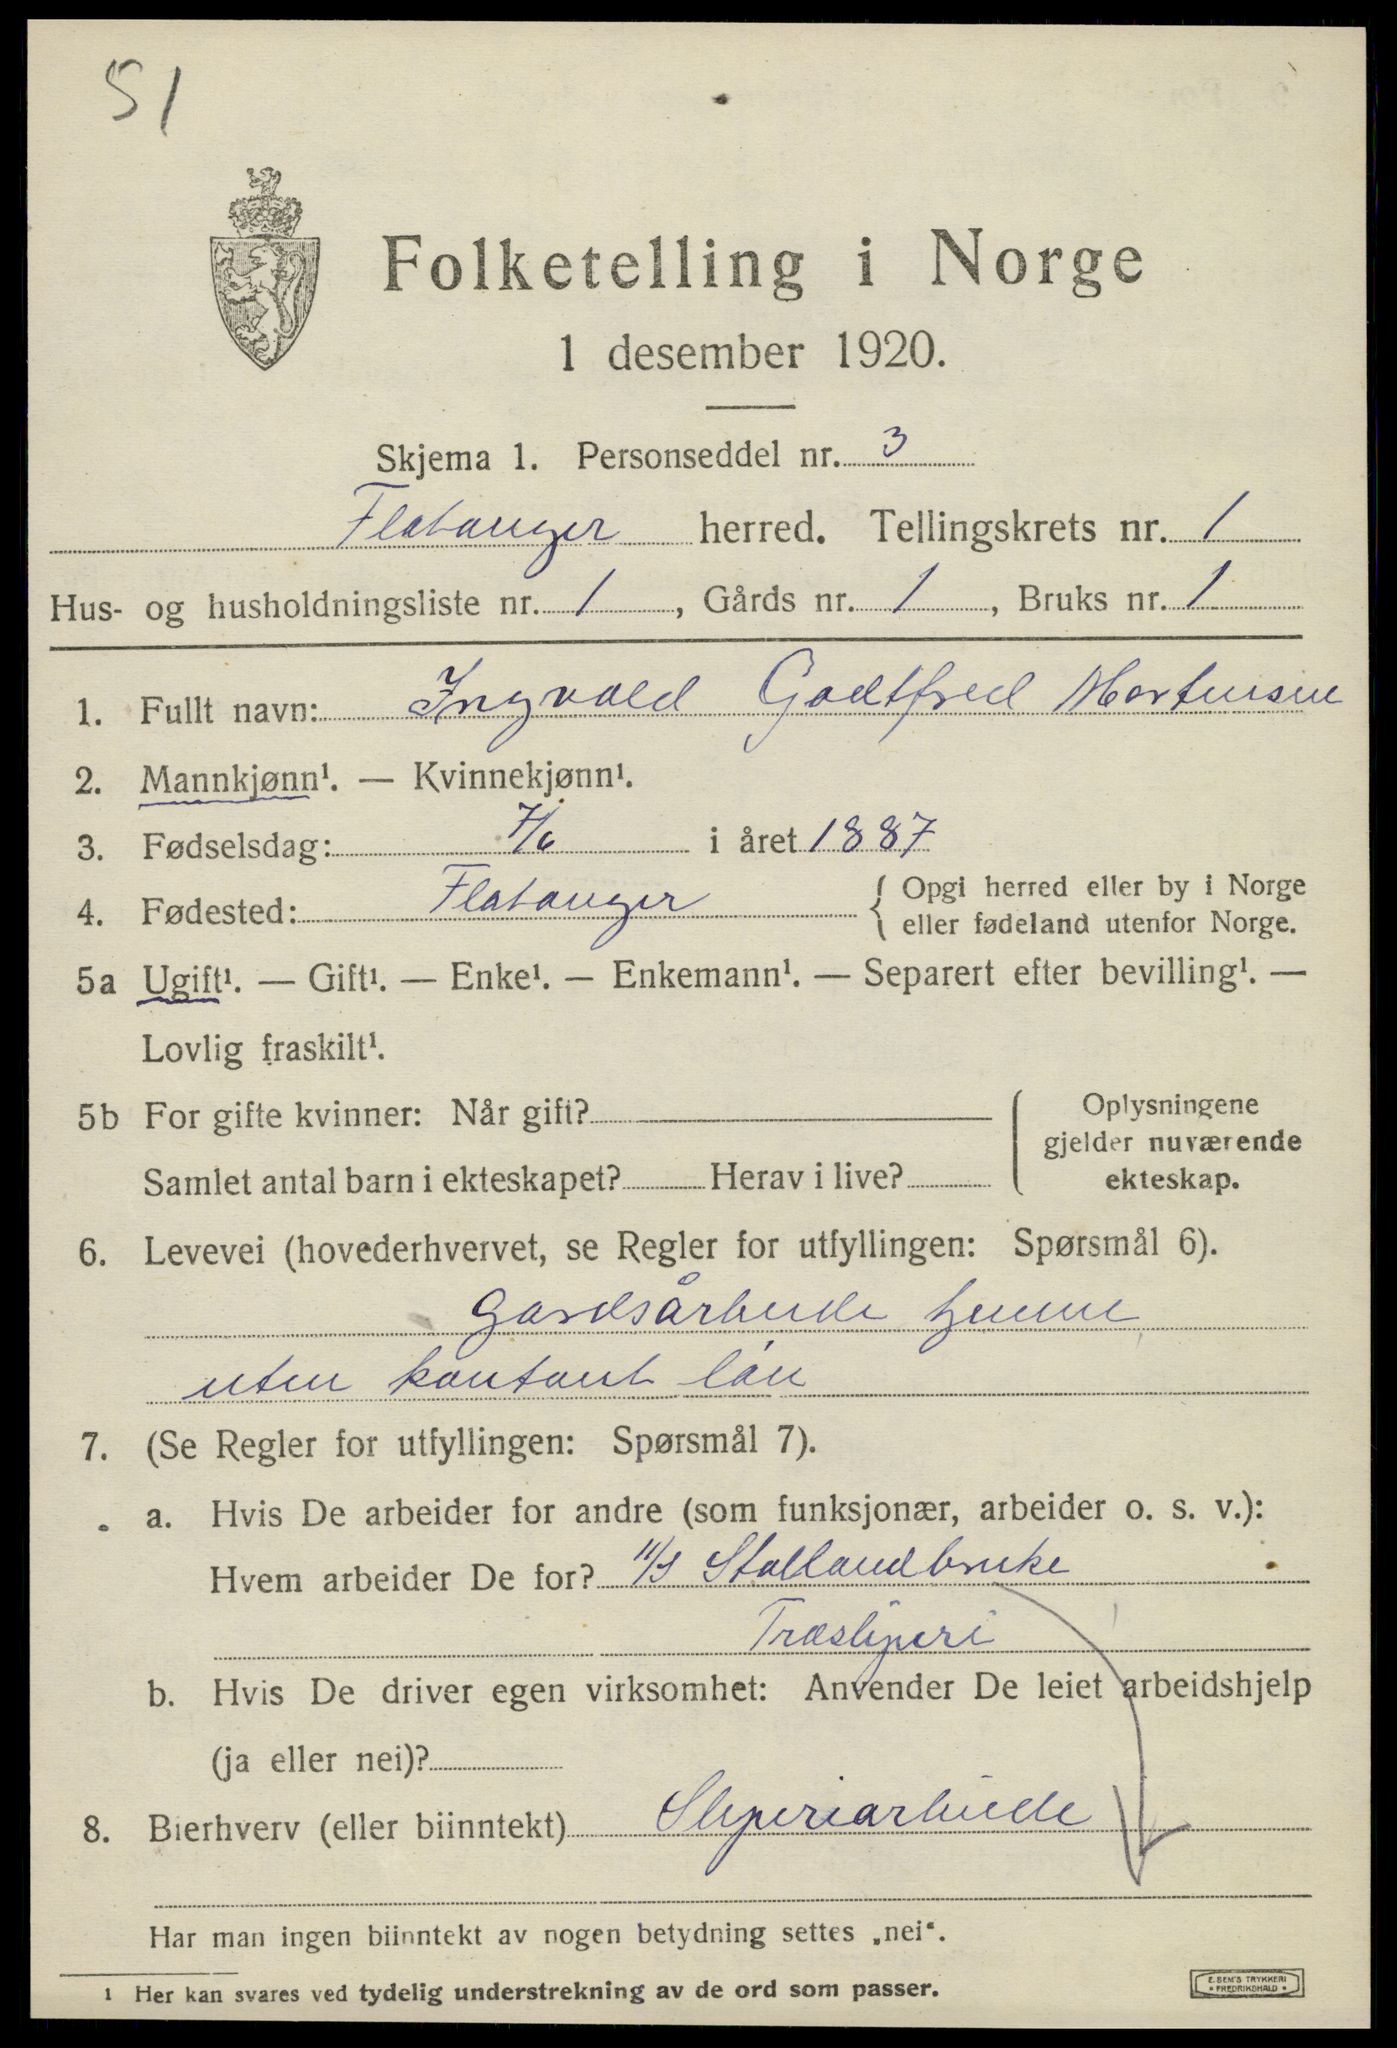 51
Folketelling i Norge
1 desember 1920.
Skjema 1. Personseddel nr. 3
Flatanger herred. Tellingskrets nr. 1
Hus- og husholdningsliste nr. 1, Gårds nr. 1, Bruks nr. 1
1. Fullt navn: Ingvald Godtfred Mortensen
2. Mannkjønn¹. — Kvinnekjønn¹.
3. Fødselsdag: 7/6 i året 1887
4. Fødested: Flatanger { Opgi herred eller by i Norge
eller fødeland utenfor Norge.
5a Ugift¹. — Gift¹. — Enke¹. — Enkemann¹. — Separert efter bevilling¹. —
Lovlig fraskilt¹.
5b For gifte kvinner: Når gift?
Samlet antal barn i ekteskapet? Herav i live?
Oplysningene
gjelder nuværende
ekteskap.
6. Levevei (hovederhvervet, se Regler for utfyllingen: Spørsmål 6).
Gardsårbeide hjemme
uten kontant lön
7. (Se Regler for utfyllingen: Spørsmål 7).
a. Hvis De arbeider for andre (som funksjonær, arbeider o. s. v.):
Hvem arbeider De for? Stallandbruke
Træsliperi
b. Hvis De driver egen virksomhet: Anvender De leiet arbeidshjelp
(ja eller nei)?
8. Bierhverv (eller biinntekt) Sliperiarbeide
Har man ingen biinntekt av nogen betydning settes „nei“.
1 Her kan svares ved tydelig understrekning av de ord som passer.
E. SEM'S TRYKKERI
• FREDRIKSHALD •